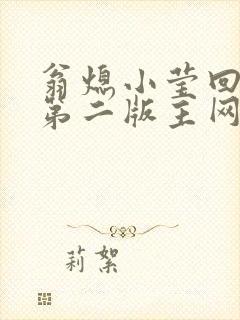 翁熄小莹回
第二版主网
莉絮